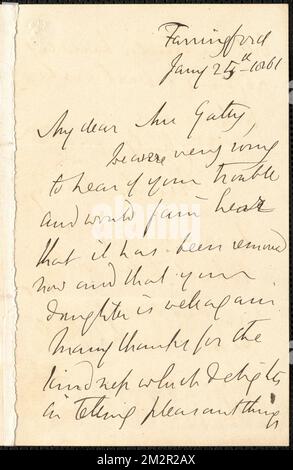 Farringford
Jany 25th 1861
My dear Mrs Gatty,
we were very sorry
to hear of your trouble
and would fain hear
that it has been removed
now and that your
daughter is well again
Many thanks for the
kindness which delights
in telling pleasant things
alamy
alamy
Image ID: 2M2R2AX
www.alamy.com